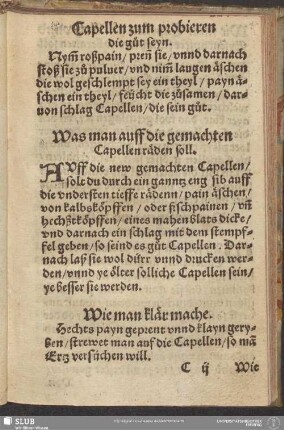 Capellen zum probieren
die güt seyn.
Nym̃ roßpain / pren̄ sie / vnnd darnach
stoß sie zů puluer / vnd nim̃ laugen äschen
die wol geschlempt sey ein theyl / payn ä-
schen ein theyl / feücht die zůsamen / dar-
uon schlag Capellen / die sein güt.
Was man auff die gemachten
Capellen räden soll.
AVff die new gemachten Capellen /
solt du durch ein ganntz eng sib auff
die vndersten tieffe rädenn / pain äschen /
von kalbsköpffen / oder fischpainen / vn̄
hechßtköpffen / eines mahenblats dicke /
vnd darnach ein schlag mit dem stempf-
fel geben / so seind es güt Capellen. Dar-
nach laß sie wol dürr vnnd drucken wer-
den / vnnd ye ölter solliche Capellen sein /
ye besser sie werden.
Wie man klär mache.
Hechts payn geprent vnnd klayn gery-
ßen / strewet man auf die Capellen / so mā
Ertz versůchen will.
C ij Wie
SLUB